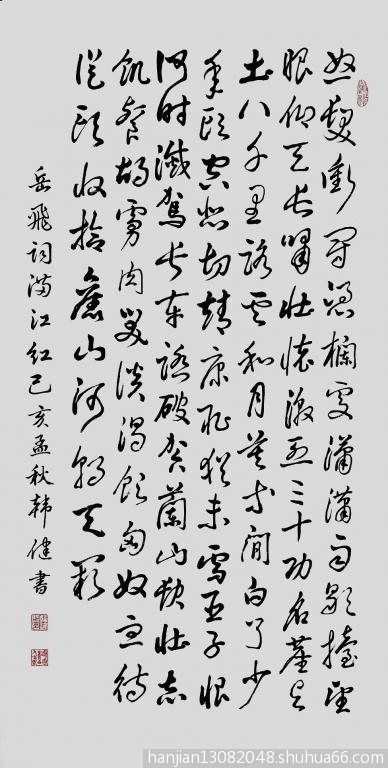 怒髮衝冠憑欄處瀟瀟雨歇擡望
眼仰天長嘯壯懷激烈三十功名塵與
土八千里路雲和月莫等閒白了少
年頭空悲切靖康恥猶未雪臣子恨
何時滅駕長車踏破賀蘭山缺壯志
飢餐胡虜肉笑談渴飲匈奴血待
從頭收拾舊山河朝天闕
岳飛詞滿江紅己亥孟秋韓健書
hanjian13082048.shuhua66.com